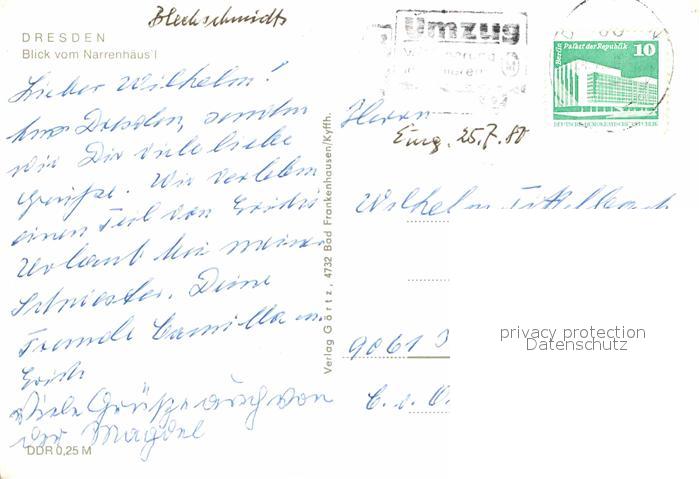 Blechschmidts
DRESDEN
Blick vom Narrenhäus'l
Lieber Wilhelm!
Aus Dresden, senden
wir Dir viele liebe
Grüße. Wir verleben
einen Teil von Erichs
Urlaub bei meiner
Schwester. Deine
Freunde Camilla u.
Erich
Viele Grüße auch von
der Magdel
DDR 0,25 M
Verlag Görtz, 4732 Bad Frankenhausen/Kyffh.
Umzug
Berlin Palast der Republik
10
DEUTSCHE DEMOKRATISCHE REPUBLIK
Herrn
Eing. 25.7.80
Wilhelm
9061
privacy protection
Datenschutz